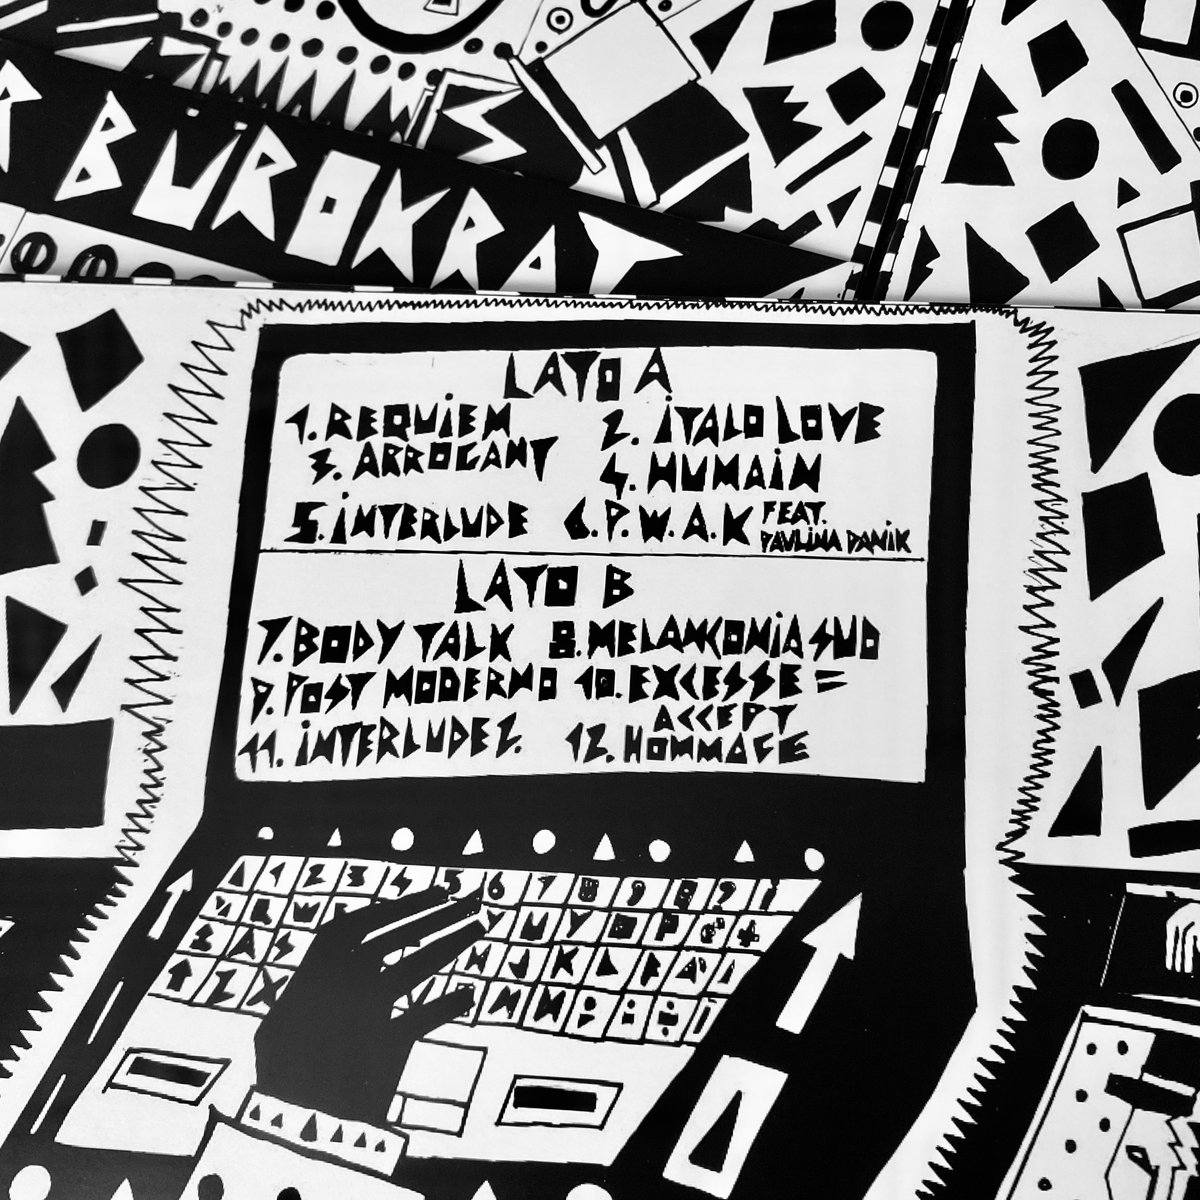 R BÜROKRAT
LATO A
1. REQUiEM 2. iTALO LOVE
3. ARROGANT 4. HUMAiN
5. iNTERLUDE 6. P.W.A.K FEAT. PAULiNA PANiK
LATO B
7. BODY TALK 8. MELANCONiA SUD
9. POST MODERNO 10. EXCESSE =
ACCEPT
11. iNTERLUDE 2. 12. HOMMAGE
1 2 3 4 5 6 7 8 9